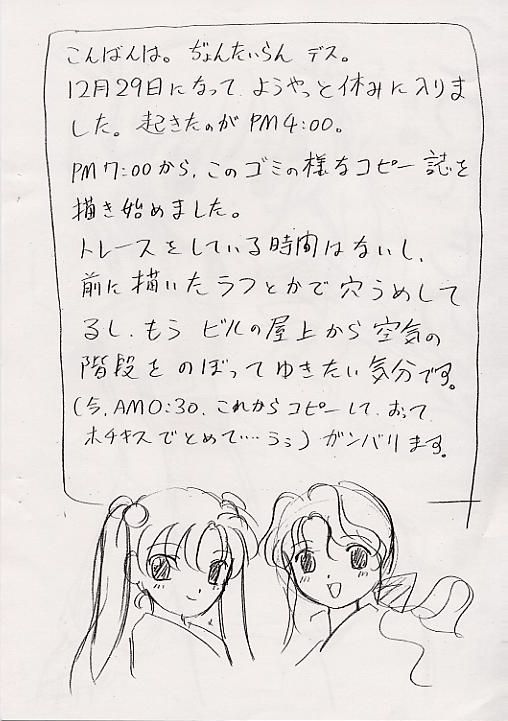 こんばんは。ぢょんたいらん デス。
12月29日になって ようやっと休みに入りま
した。起きたのが PM4:00。
PM7:00から、このゴミの様なコピー誌を
描き始めました。
トレースをしている時間はないし、
前に描いたラフとかで穴うめして
るし、もう ビルの屋上から空気の
階段をのぼってゆきたい気分です。
(今、AM0:30、これからコピーして、おって
ホチキスでとめて‥‥うぅ)ガンバリます。